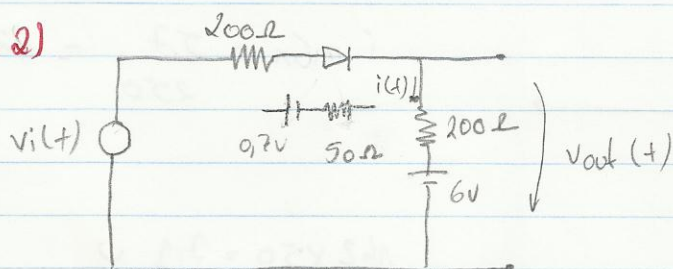 2)
200Ω
i(t)
vi(t)
0,7v
50Ω
200Ω
6v
vout(t)